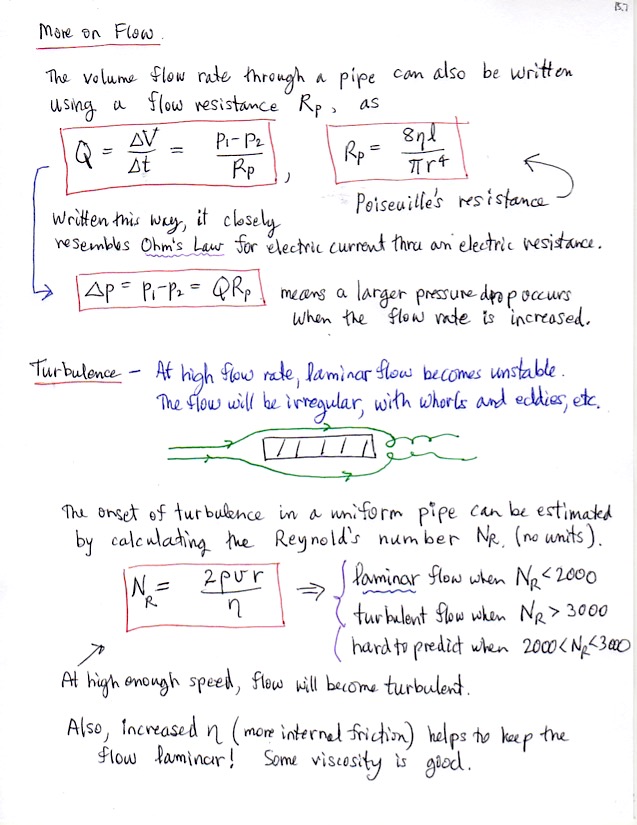 15.7
More on Flow.
The volume flow rate through a pipe can also be written
using a flow resistance Rp, as
Q = ΔV/Δt = p₁-p₂/Rp , Rp = 8ηl/πr⁴
Poiseuille's resistance
Written this way, it closely
resembles Ohm's Law for electric current thru an electric resistance.
Δp = p₁-p₂ = QRp means a larger pressure drop occurs
when the flow rate is increased.
Turbulence – At high flow rate, laminar flow becomes unstable.
The flow will be irregular, with whorls and eddies, etc.
The onset of turbulence in a uniform pipe can be estimated
by calculating the Reynold's number NR. (no units).
NR = 2ρvr/η ⇒ { laminar flow when NR < 2000
turbulent flow when NR > 3000
hard to predict when 2000 < NR < 3000
At high enough speed, flow will become turbulent.
Also, increased η (more internal friction) helps to keep the
flow laminar! Some viscosity is good.